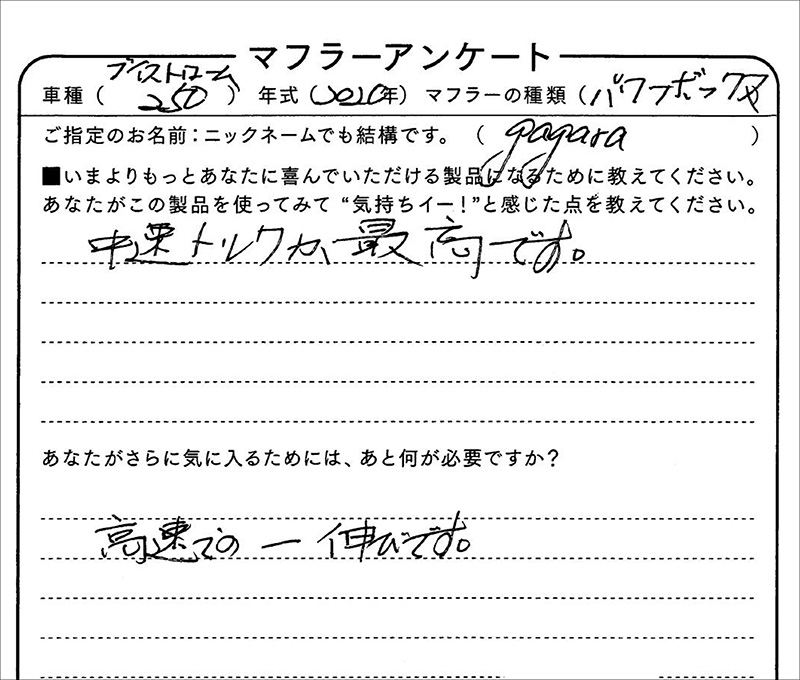 マフラーアンケート
車種（ブイストローム250） 年式（2020年） マフラーの種類（パワーボックス
ご指定のお名前：ニックネームでも結構です。（ gagara ）
■いまよりもっとあなたに喜んでいただける製品になるために教えてください。
あなたがこの製品を使ってみて“気持ちイー！”と感じた点を教えてください。
中速トルクが最高です。
あなたがさらに気に入るためには、あと何が必要ですか？
高速での一伸びです。